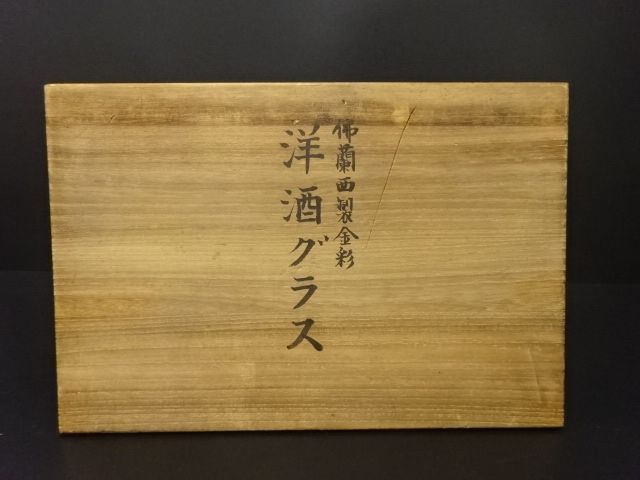 佛蘭西製金彩
洋酒グラス